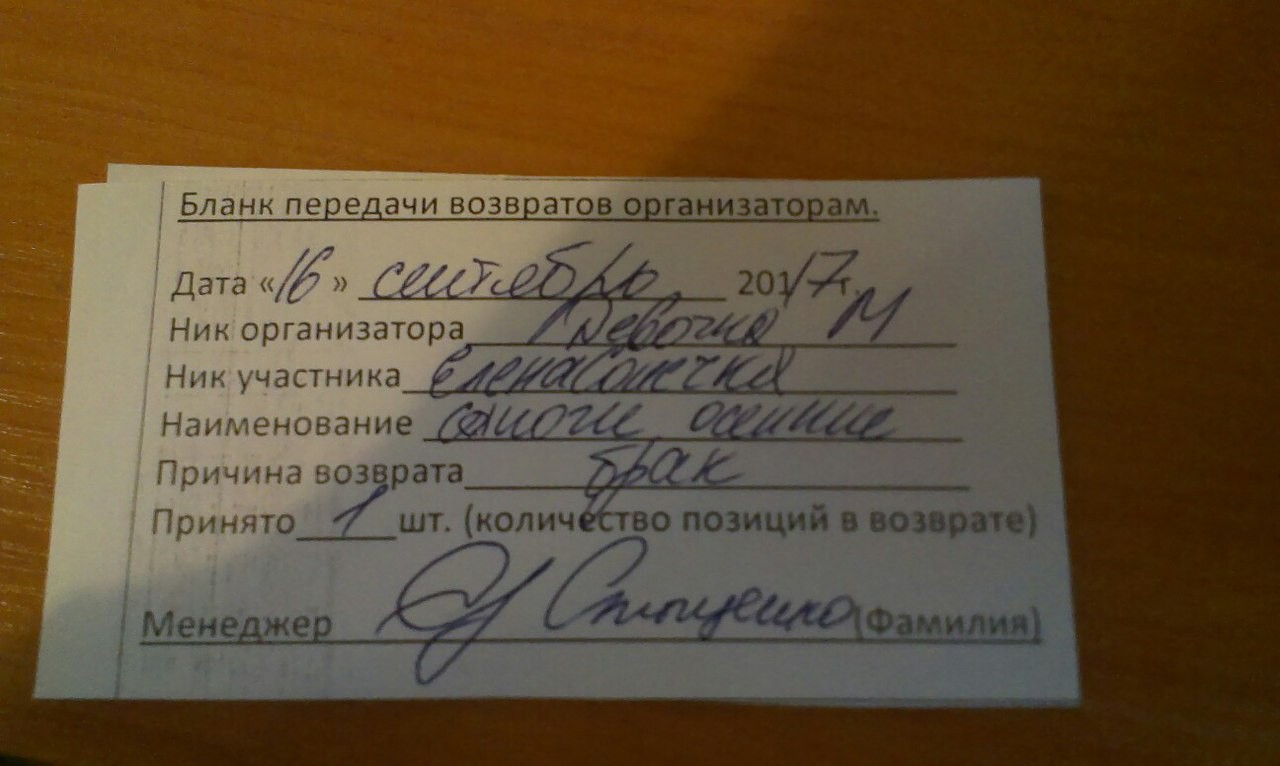 Бланк передачи возвратов организаторам.
Дата «16» сентябрь 2017г.
Ник организатора Девочка М
Ник участника ЕленаСонечка
Наименование сапоги осенние
Причина возврата брак
Принято 1 шт. (количество позиций в возврате)
Менеджер (Фамилия)